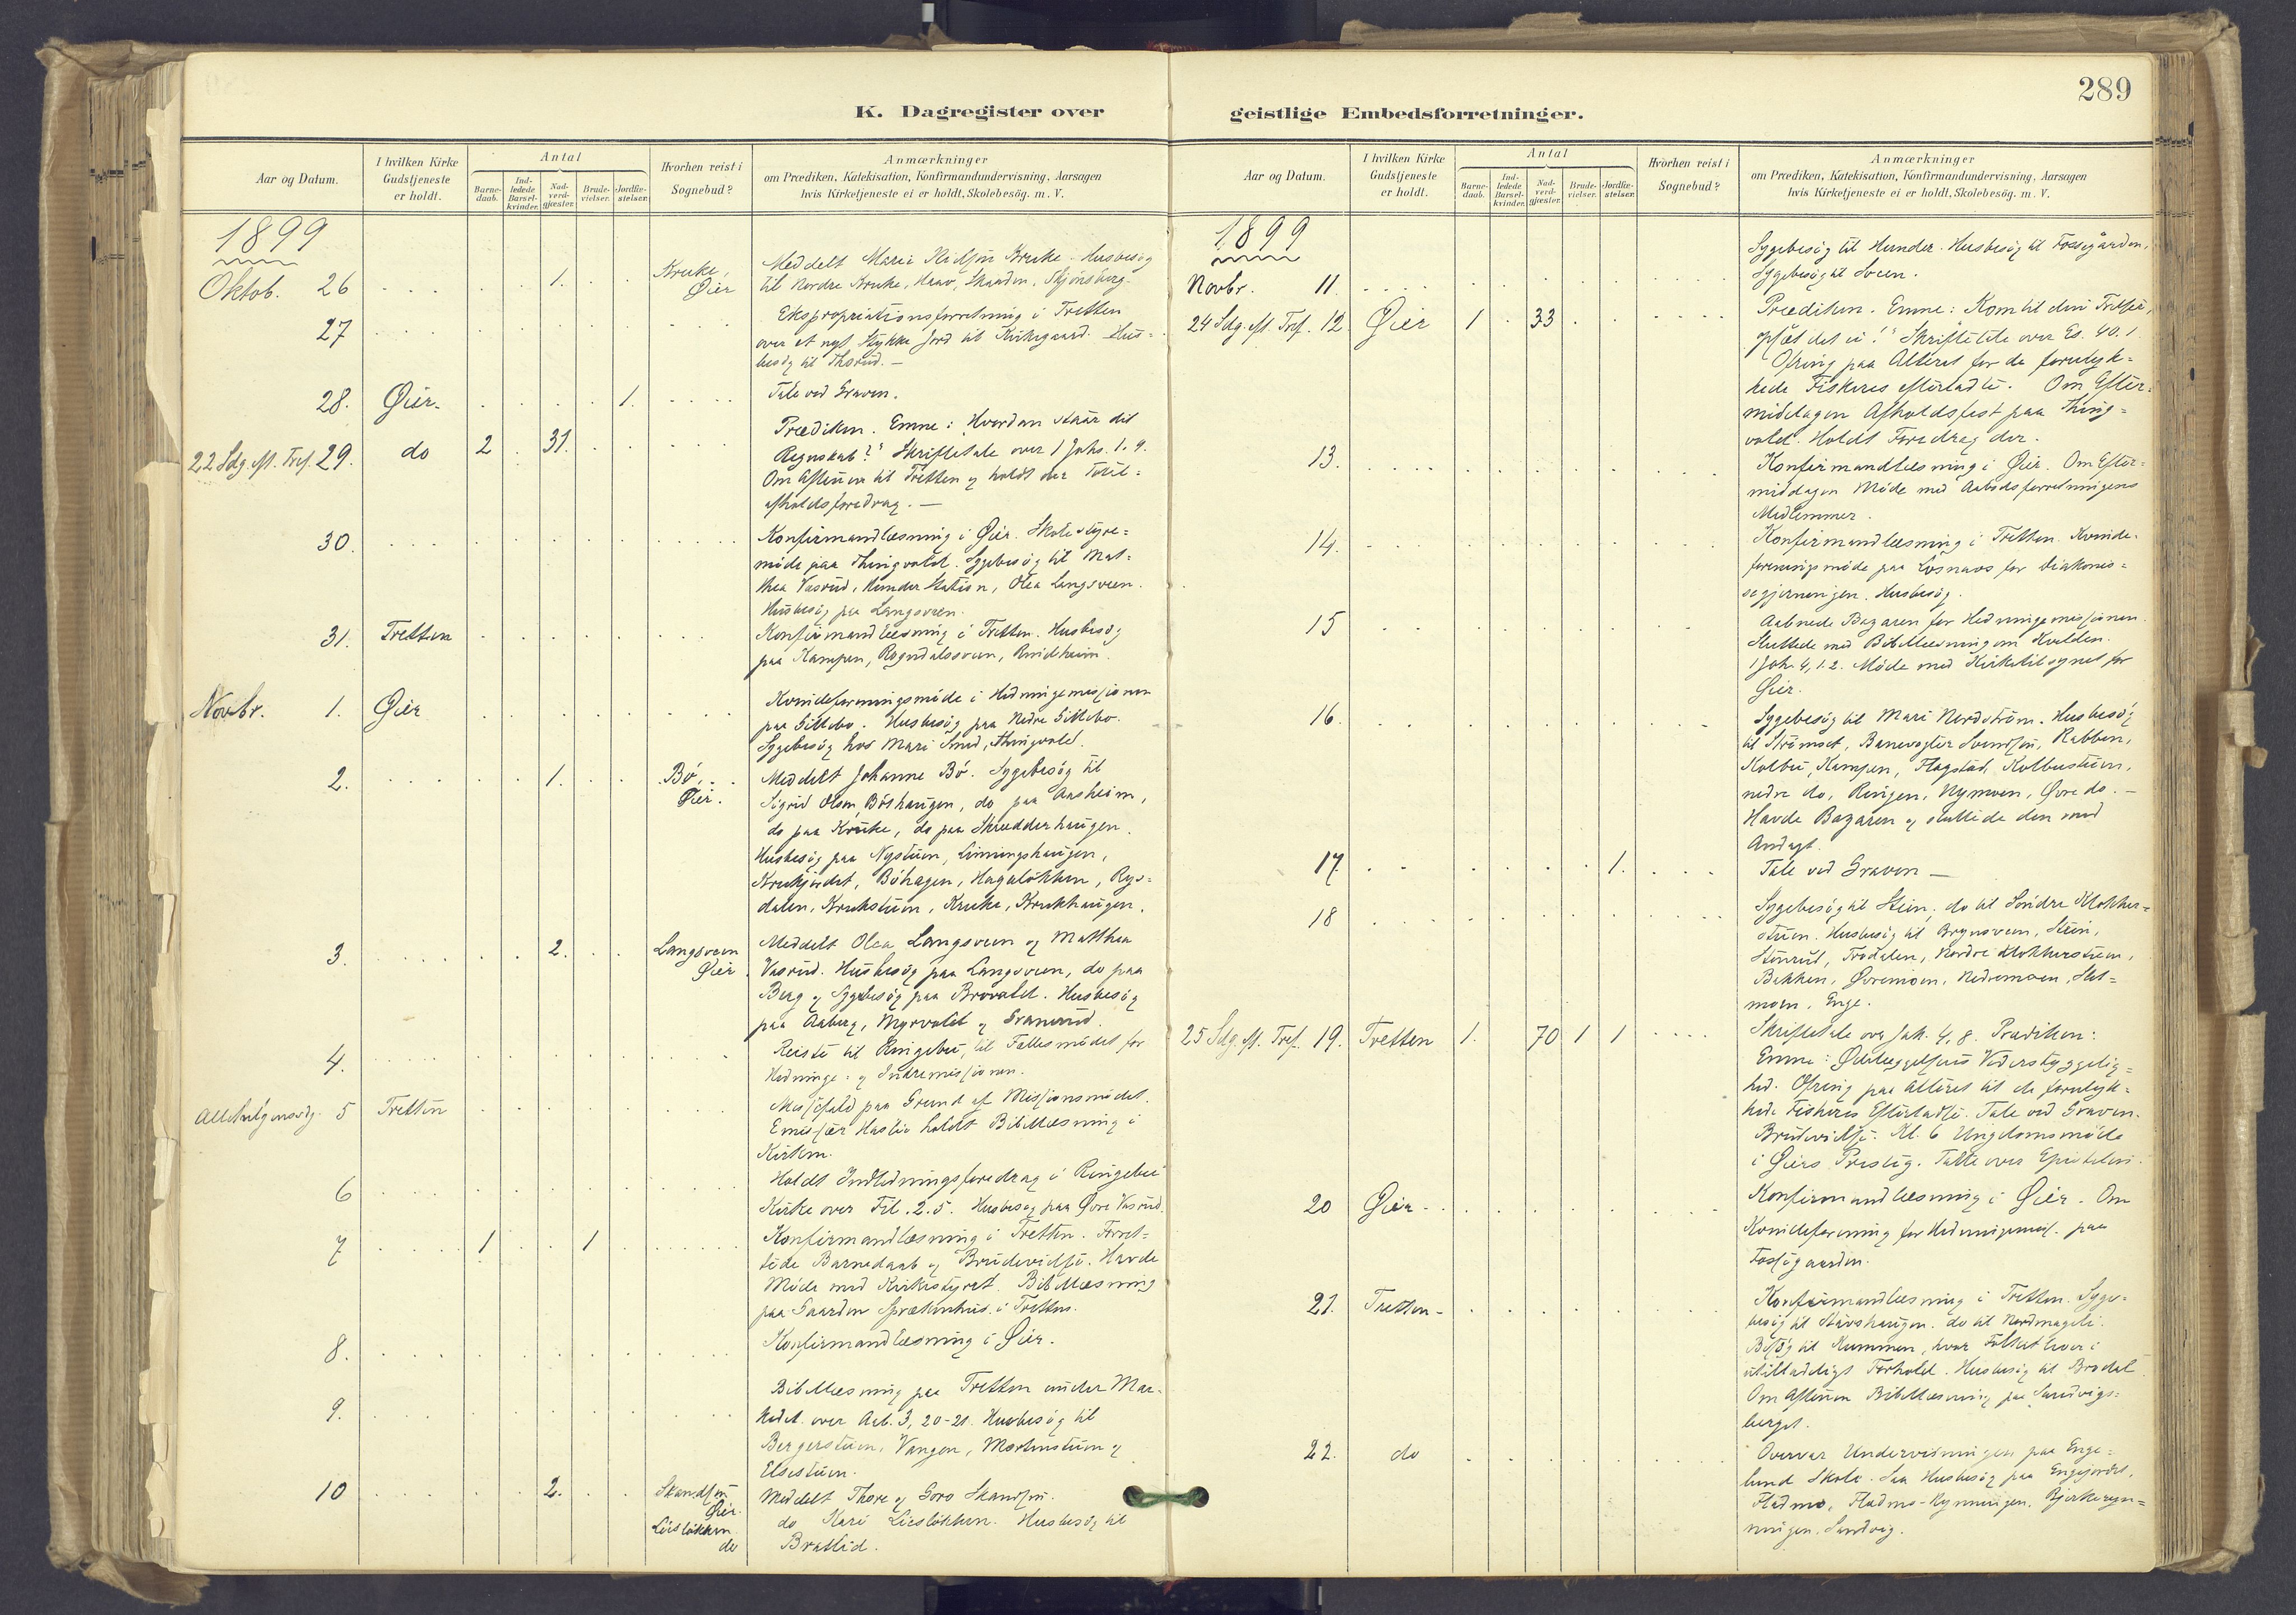 289
K. Dagregister over geistlige Embedsforretninger.
Aar og Datum.
I hvilken Kirke Gudstjeneste er holdt.
Antal
Barne-daab.
Ind-ledede Barsel-kvinder.
Nad-verd-gjæster.
Brude-vielser.
Jordfæ-stelser.
Hvorhen reist i Sognebud?
Anmærkninger
om Prædiken, Katekisation, Konfirmandundervisning, Aarsagen
hvis Kirketjeneste ei er holdt, Skolebesög. m. V.
1899
Oktob. 26 1. Kruke, Øier
Meddelt Mari Kruke. Husbesög
til Nordre Kruke, Skaaden, Skjönsberg.
27
Ekspropriationsforretning i Tretten
over et nyt Stykke Jord til Kirkegaard. Hus=
besög til Thorud. —
28. Øier. 1.
Tale ved Graven.
22 Sdg. eft. Tref. 29. do 2 31.
Prædiken. Emne: Hvordan staar dit
Regnskab?" Skriftetale over 1 Johs. 1.9.
Om Aftenen til Tretten og holdt der Total=
afholdsforedrag. —
30.
Konfirmandlæsning i Øier. Skolestyre=
möde paa Thingvold. Sygebesög til Mat=
thea Vasrud, Hunder Station, Olea Langsveen.
Husbesög paa Langsveen.
31. Tretten
Konfirmandlæsning i Tretten. Husbesög
paa Kampen, Rogndalssveen,
Novbr. 1. Øier
Kvindeforeningsmöde i Hedningemissionen
paa Gillebo. Husbesög paa Nedre Gillebo.
Sygebesög hos Mari Smed, Thingvold.
2. 1. Bö, Øier.
Meddelt Johanne Bö. Sygebesög til
Sigrid Olsen Böshaugen, do paa Aasheim,
do paa Kruke, do paa Skrædderhaugen.
Husbesög paa Nystuen, Linningshaugen,
Krukjordet, Böhagen, Hagalökken, Rys=
dalen, Krukstuen, Kruke, Krukhaugen.
3. 2. Langsveen Øier
Meddelt Olea Langsveen og Matthea
Vasrud. Husbesög paa Langsveen, do paa
Berg og Sygebesög paa Brovold. Husbesög
paa Aaberg, Myrvold og Granerud.
4.
Reiste til Ringebu, til Fællesmödet for
Hedninge- og Indremissionen.
Allehelgensdg. 5 Tretten
Messefald paa Grund af Missionsmödet.
Emissær Haslie holdt Bibellæsning i
Kirken.
6
Holdt Indledningsforedrag i Ringebu
Kirke over Fil. 2.5. Husbesög paa Øvre Vasrud.
7 1 1
Konfirmandlæsning i Tretten. Forret=
tede Barnedaab og Brudevielse. Havde
Möde med Kirkestyret. Bibellæsning
paa Gaarden Sprækenhus i Tretten.
8.
Konfirmandlæsning i Øier.
9.
Bibellæsning paa Tretten under Mar-
kedet over Aab. 3, 20-21. Husbesög til
Bergerstuen, Vangen, Mortenstuen og
Elsestuen.
10 2. Øier. Lieslökken do
Meddelt Thore og Goro
do Kari Lieslökken. Husbesög til
Bratlid.
Aar og Datum.
I hvilken Kirke Gudstjeneste er holdt.
Antal
Barne-daab.
Ind-ledede Barsel-kvinder.
Nad-verd-gjæster.
Brude-vielser.
Jordfæ-stelser.
Hvorhen reist i Sognebud?
Anmærkninger
om Prædiken, Katekisation, Konfirmandundervisning, Aarsagen
hvis Kirketjeneste ei er holdt, Skolebesög. m. V.
1899
Novbr. 11.
Sygebesög til Hunder. Husbesög til Fossegården.
Sygebesög til Sveen.
24 Sdg. eft. Tref. 12. Øier 1 33
Prædiken. Emne: Kom til din Frelser,
opsæt det ei!" Skriftetale over Es. 40.1
Ofring paa Alteret for de forulyk=
kede Fiskeres efterladte. Om Efter=
middagen Afholdsfest paa Thing=
vold. Holdt Foredrag der.
13.
Konfirmandlæsning i Øier. Om Efter=
middagen Möde med Aabodsforretningens
Medlemmer.
14.
Konfirmandlæsning i Tretten. Kvinde-
foreningsmöde paa Lösnaas for Diakonis=
segjerningen. Husbesög.
15
Aabnede Bazaren for Hedningemissionen.
Sluttede med Bibellæsning om Kvelden.
1 Joh. 4, 1.2. Möde med Kirketilsynet for
Øier.
16.
Sygebesög til Mari Nordström. Husbesög
til Strömoet, Banevogter Svendsen, Rabben,
Kolbu, Kampen, Flagstad, Kolbustuen,
nedre do, Ringen, Nymoen, Øvre do. —
Havde Bazaren og sluttede den med
Andagt.
17. 1.
Tale ved Graven —
18
Sygebesög til Stein, do til Söndre Klokker=
stuen. Husbesög til Brynsveen, Stein,
Stenrud, Trodalen, Nordre Klokkerstuen,
Bakken, Øvremoen, Nedremoen, Slet=
moen, Enge.
25 Sdg. eft. Tref. 19. Tretten 1. 70 1 1
Skriftetale over Jak. 4, 8. Prædiken:
Emne: Ødelæggelsens Vederstyggelig=
hed. Ofring paa Alteret til de forulyk=
kede Fiskeres Efterladte. Tale ved Graven.
Brudevielse. Kl. 6 Ungdomsmöde
i Øiers Presteg. Talte over Epistelen.
20 Øier
Konfirmandlæsning i Øier. Om
Kvindeforening for Hedningemis. paa
Fossegaarden.
21. Tretten
Konfirmandlæsning i Tretten. Syge=
besög til Stavshaugen. do til Nordmageli.
Besög til Rummen, hvor Folket lever i
utilladeligt Forhold. Husbesög til
Om Aftenen Bibellæsning paa Sandvigs=
berget.
22. do
Overvar Undervisningen paa Enge=
lund Skole. Saa Husbesög paa Engejordet,
Fladmo, Fladmo-Rynningen, Bjerkeryn=
ningen, Sandvig.